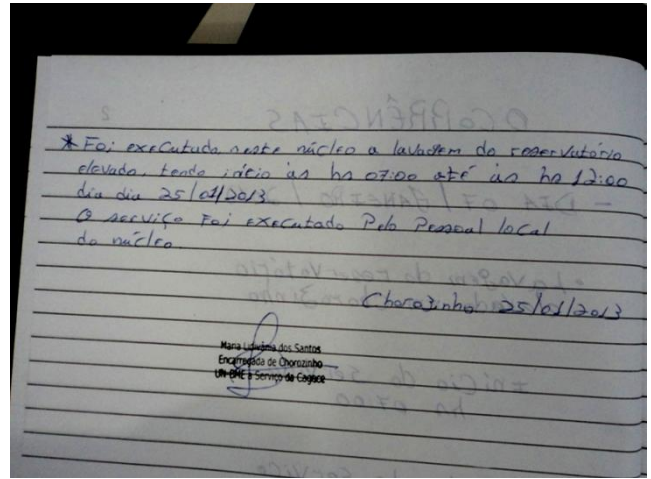 * Foi executada neste núcleo a lavagem do reservatório
elevado, tendo início às hs 07:00 até às hs 12:00
dia dia 25/01/2013
O serviço Foi executado Pelo Pessoal local
do núcleo
Chorozinho 25/01/2013
Maria Lidivânia dos Santos
Encarregada de Chorozinho
UN-BME a Serviço da Cagece